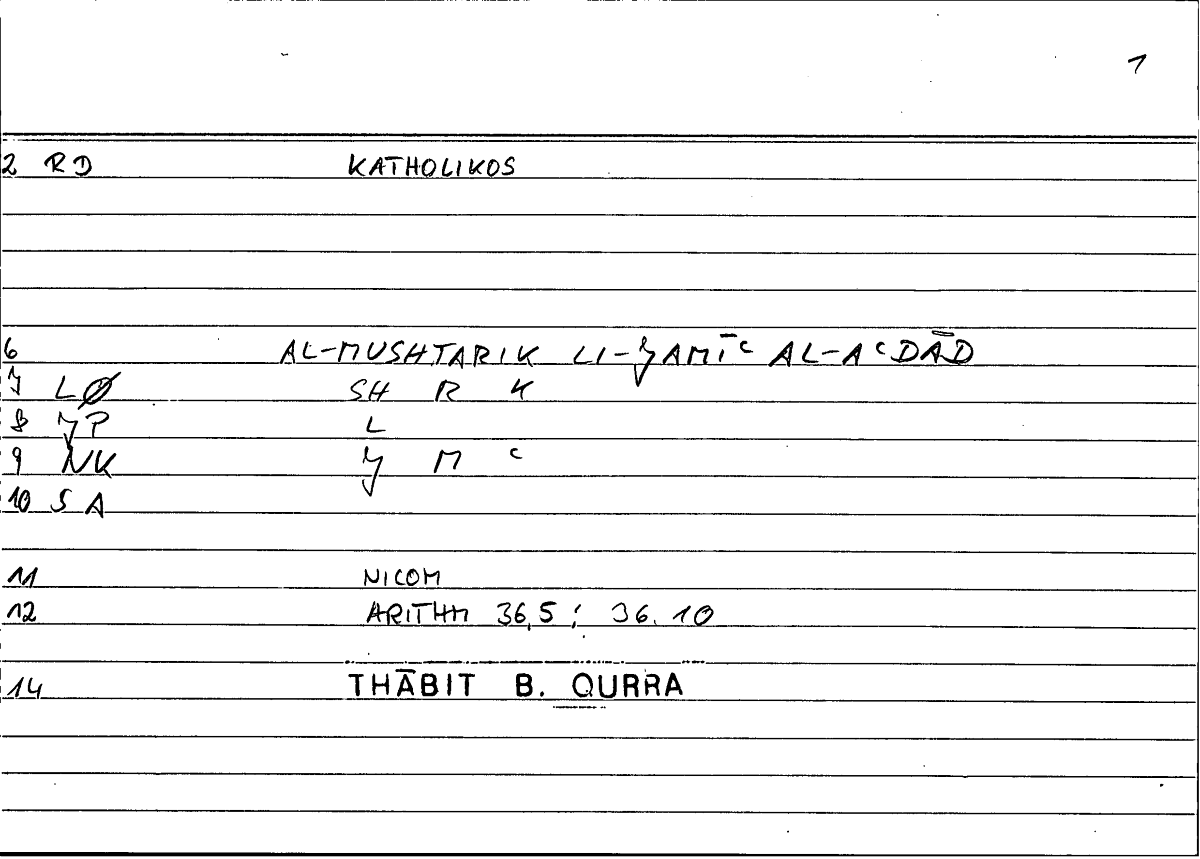 1
2 RD KATHOLIKOS
6 AL-MUSHTARIK LI-ǦAMĪʿ AL-AʿDĀD
7 LØ SH R K
8 ǦP L
9 NK Ǧ M ʿ
10 SA
11 NICOM
12 ARITHM 36,5; 36.10
14 THĀBIT B. QURRA